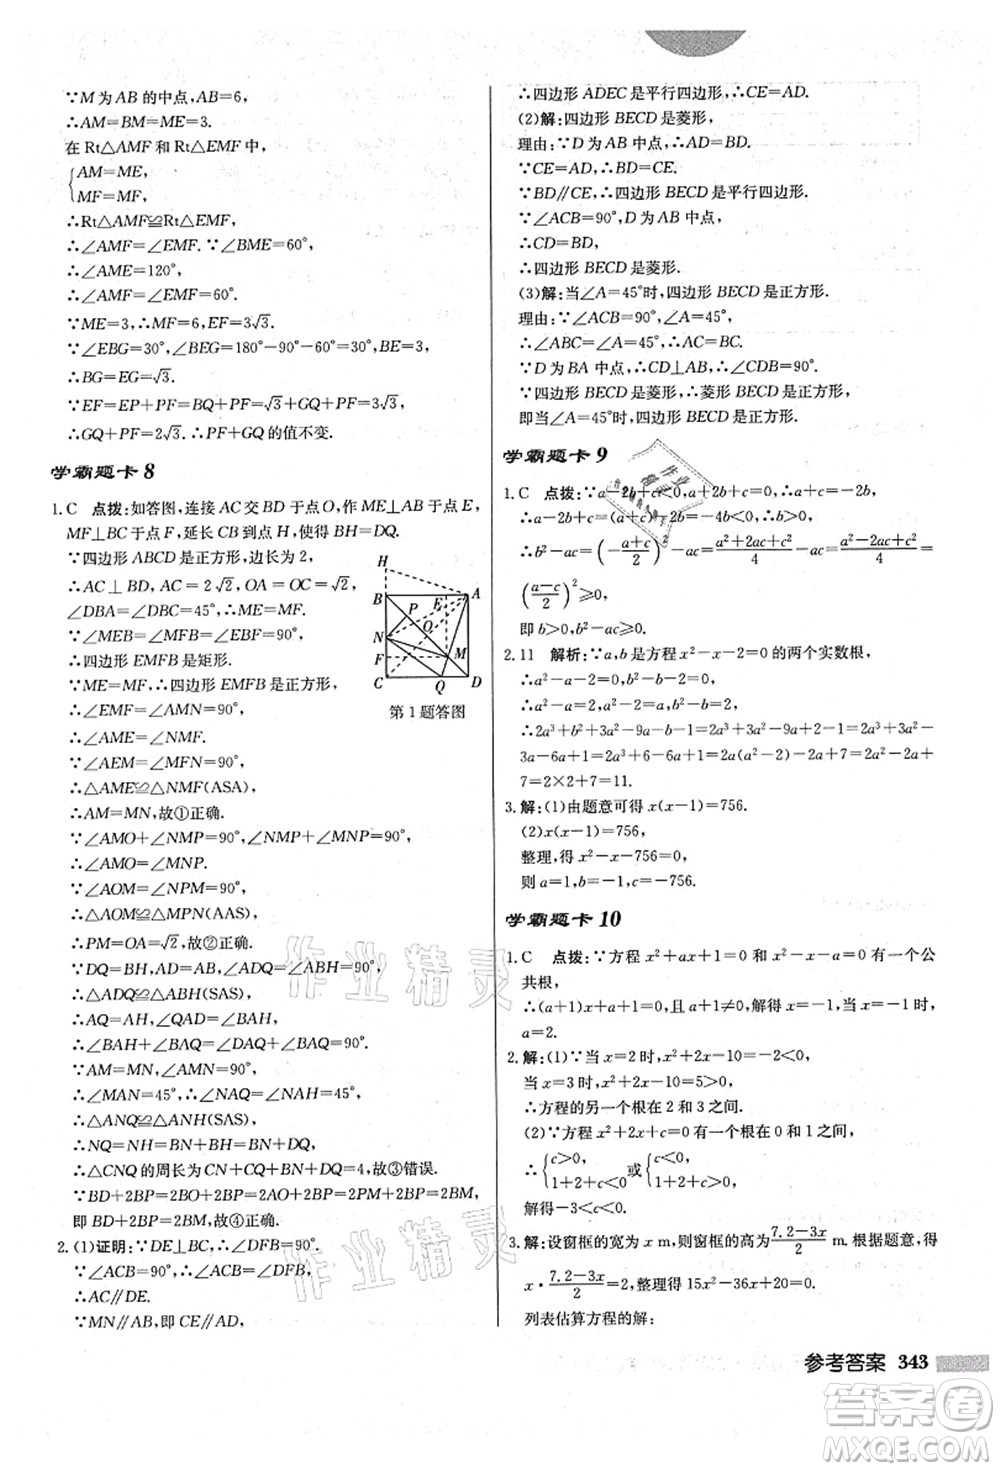 ∵M 为 AB 的中点,AB=6,
∴AM=BM=ME=3.
在 Rt△AMF 和 Rt△EMF 中,
{AM=ME,
MF=MF,
∴Rt△AMF≌Rt△EMF.
∴∠AMF=∠EMF.∵∠BME=60°,
∴∠AME=120°,
∴∠AMF=∠EMF=60°.
∵ME=3,∴MF=6,EF=3√3.
∵∠EBG=30°,∠BEG=180°-90°-60°=30°,BE=3,
∴BG=EG=√3.
∵EF=EP+PF=BQ+PF=√3+GQ+PF=3√3,
∴GQ+PF=2√3.∴PF+GQ 的值不变.
学霸题卡 8
1.C 点拨:如答图,连接 AC 交 BD 于点 O,作 ME⊥AB 于点 E,
MF⊥BC 于点 F,延长 CB 到点 H,使得 BH=DQ.
∵四边形 ABCD 是正方形,边长为 2,
∴AC⊥BD,AC=2√2,OA=OC=√2,
∠DBA=∠DBC=45°,∴ME=MF.
∵∠MEB=∠MFB=∠EBF=90°,
∴四边形 EMFB 是矩形.
∵ME=MF,∴四边形 EMFB 是正方形,
∴∠EMF=∠AMN=90°,
∴∠AME=∠NMF.
∵∠AEM=∠MFN=90°,
∴△AME≌△NMF(ASA),
∴AM=MN,故①正确.
∵∠AMO+∠NMP=90°,∠NMP+∠MNP=90°,
∴∠AMO=∠MNP.
∵∠AOM=∠NPM=90°,
∴△AOM≌△MPN(AAS),
∴PM=OA=√2,故②正确.
∵DQ=BH,AD=AB,∠ADQ=∠ABH=90°,
∴△ADQ≌△ABH(SAS),
∴AQ=AH,∠QAD=∠BAH,
∴∠BAH+∠BAQ=∠DAQ+∠BAQ=90°.
∵AM=MN,∠AMN=90°,
∴∠MAN=45°,∴∠NAQ=∠NAH=45°,
∴△ANQ≌△ANH(SAS),
∴NQ=NH=BN+BH=BN+DQ,
∴△CNQ 的周长为 CN+CQ+BN+DQ=4,故③错误.
∵BD+2BP=2BO+2BP=2AO+2BP=2PM+2BP,
即 BD+2BP=2BM,故④正确.
2.(1)证明:∵DE⊥BC,∴∠DFB=90°.
∵∠ACB=90°,∴∠ACB=∠DFB,
∴AC∥DE.
∵MN∥AB,即 CE∥AD,
H
B
A
E
P
O
N
F
M
C
Q
D
第 1 题答图
∴四边形 ADEC 是平行四边形,∴CE=AD.
(2)解:四边形 BECD 是菱形,
理由:∵D 为 AB 中点,∴AD=BD.
∵CE=AD,∴BD=CE.
∵BD∥CE,∴四边形 BECD 是平行四边形.
∵∠ACB=90°,D 为 AB 中点,
∴CD=BD,
∴四边形 BECD 是菱形.
(3)解:当∠A=45°时,四边形 BECD 是正方形.
理由:∵∠ACB=90°,∠A=45°,
∴∠ABC=∠A=45°,∴AC=BC.
∵D 为 BA 中点,∴CD⊥AB,∴∠CDB=90°.
∵四边形 BECD 是菱形,∴菱形 BECD 是正方形,
即当∠A=45°时,四边形 BECD 是正方形.
学霸题卡 9
1.C 点拨:∵a-2b+c<0,a+2b+c=0,∴a+c=-2b,
∴a-2b+c=(a+c)-2b=-4b<0,∴b>0,
∴b²-ac=(-(a+c)/2)²-ac=(a²+2ac+c²)/4-ac=(a²-2ac+c²)/4=
((a-c)/2)²≥0,
即 b>0,b²-ac≥0.
2.11 解析:∵a,b 是方程 x²-x-2=0 的两个实数根,
∴a²-a-2=0,b²-b-2=0,
∴a²-a=2,a²=a+2,b²-b=2,
∴2a³+b²+3a²-9a-b-1=2a³+3a²-9a+1=2a³+
3a-6a+1=2a³+6-6a+1=2a(a²-3)+7=2a²-2a+
7=2×2+7=11.
3.解:(1)由题意可得 x(x-1)=756.
(2)x(x-1)=756,
整理,得 x²-x-756=0,
则 a=1,b=-1,c=-756.
学霸题卡 10
1.C 点拨:∵方程 x²+ax+1=0 和 x²-x-a=0 有一个公
共根,
∴(a+1)x+a+1=0,且 a+1≠0,解得 x=-1,当 x=-1 时,
a=2.
2.解:(1)∵当 x=2 时,x²+2x-10=-2<0,
当 x=3 时,x²+2x-10=5>0,
∴方程的另一个根在 2 和 3 之间.
(2)∵方程 x²+2x+c=0 有一个根在 0 和 1 之间,
∴{c>0,
1+2+c<0或{c<0,
1+2+c>0,
解得-3<c<0.
3.解:设窗框的宽为 x m,则窗框的高为 (7.2-3x)/2 m.根据题意,得
x·(7.2-3x)/2=2,整理得 15x²-36x+20=0.
列表估算方程的解:
参考答案 343
作业精灵
作业精灵
答案圈
MXQE.COM